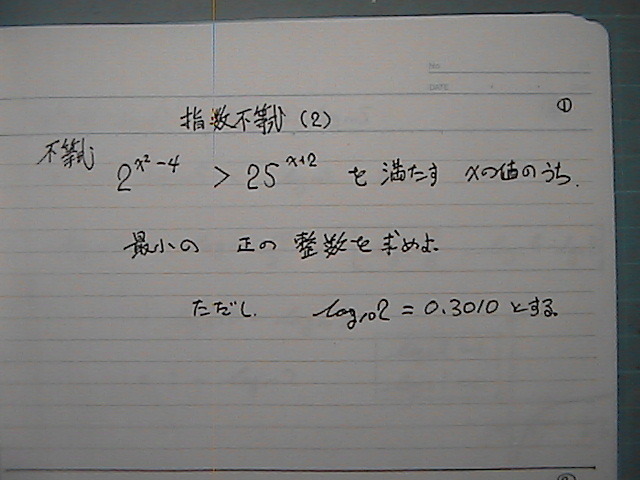 No.
DATE
①
指数不等式 (2)
不等式 2^{x²-4} > 25^{x+2} を満たす xの値のうち.
最小の 正の 整数を求めよ.
ただし. log₁₀2 = 0.3010 とする.